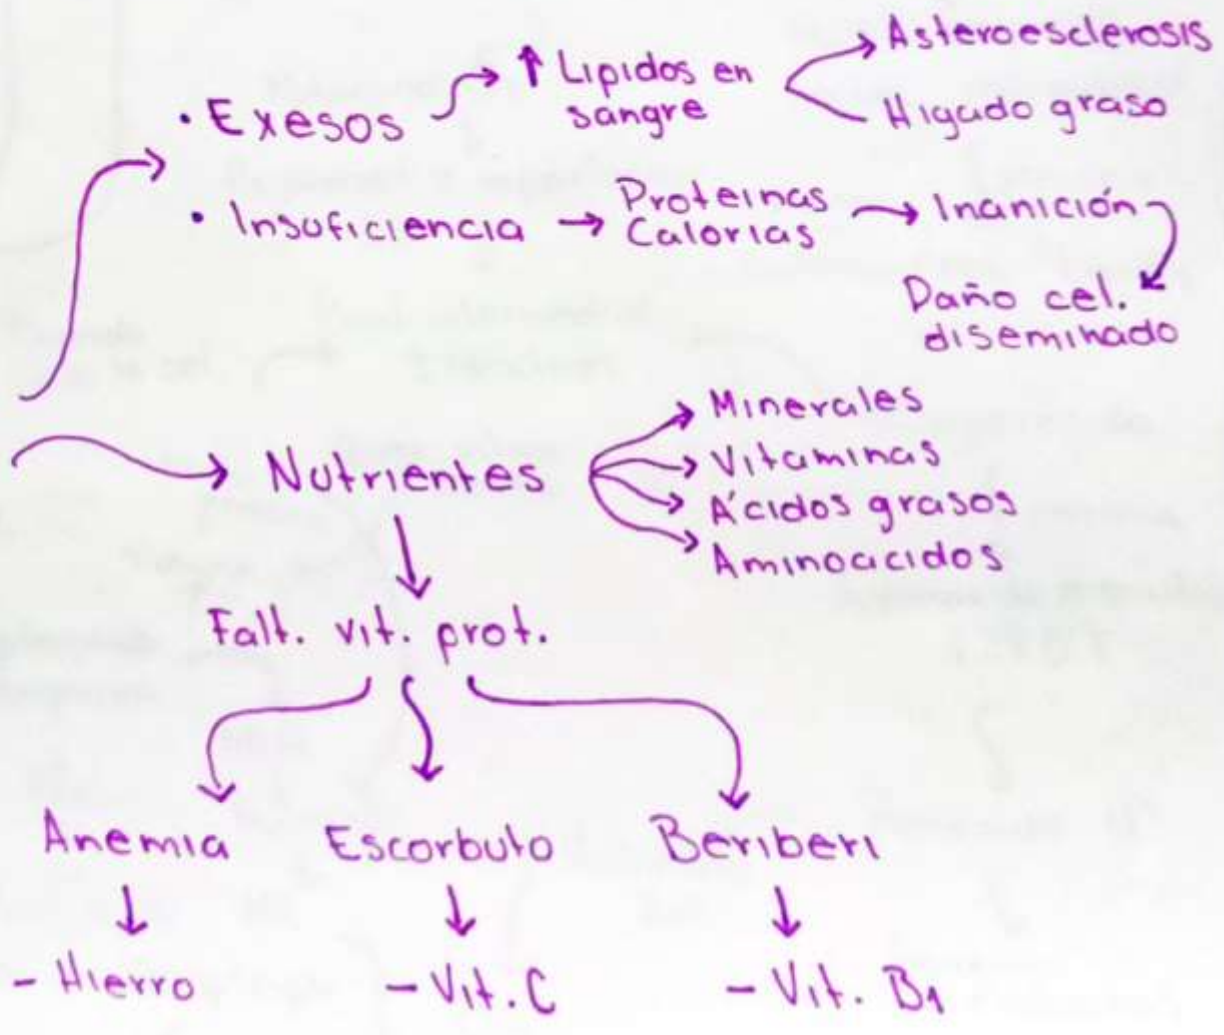 • Exesos
↑ Lipidos en
sangre
Asteroesclerosis
Higado graso
• Insuficiencia →
Proteinas
Calorias
Inanición
Daño cel.
diseminado
Nutrientes
Minerales
Vitaminas
Ácidos grasos
Aminoacidos
Falt. vit. prot.
Anemia
Escorbuto
Beriberi
- Hierro
- Vit. C
- Vit. B1